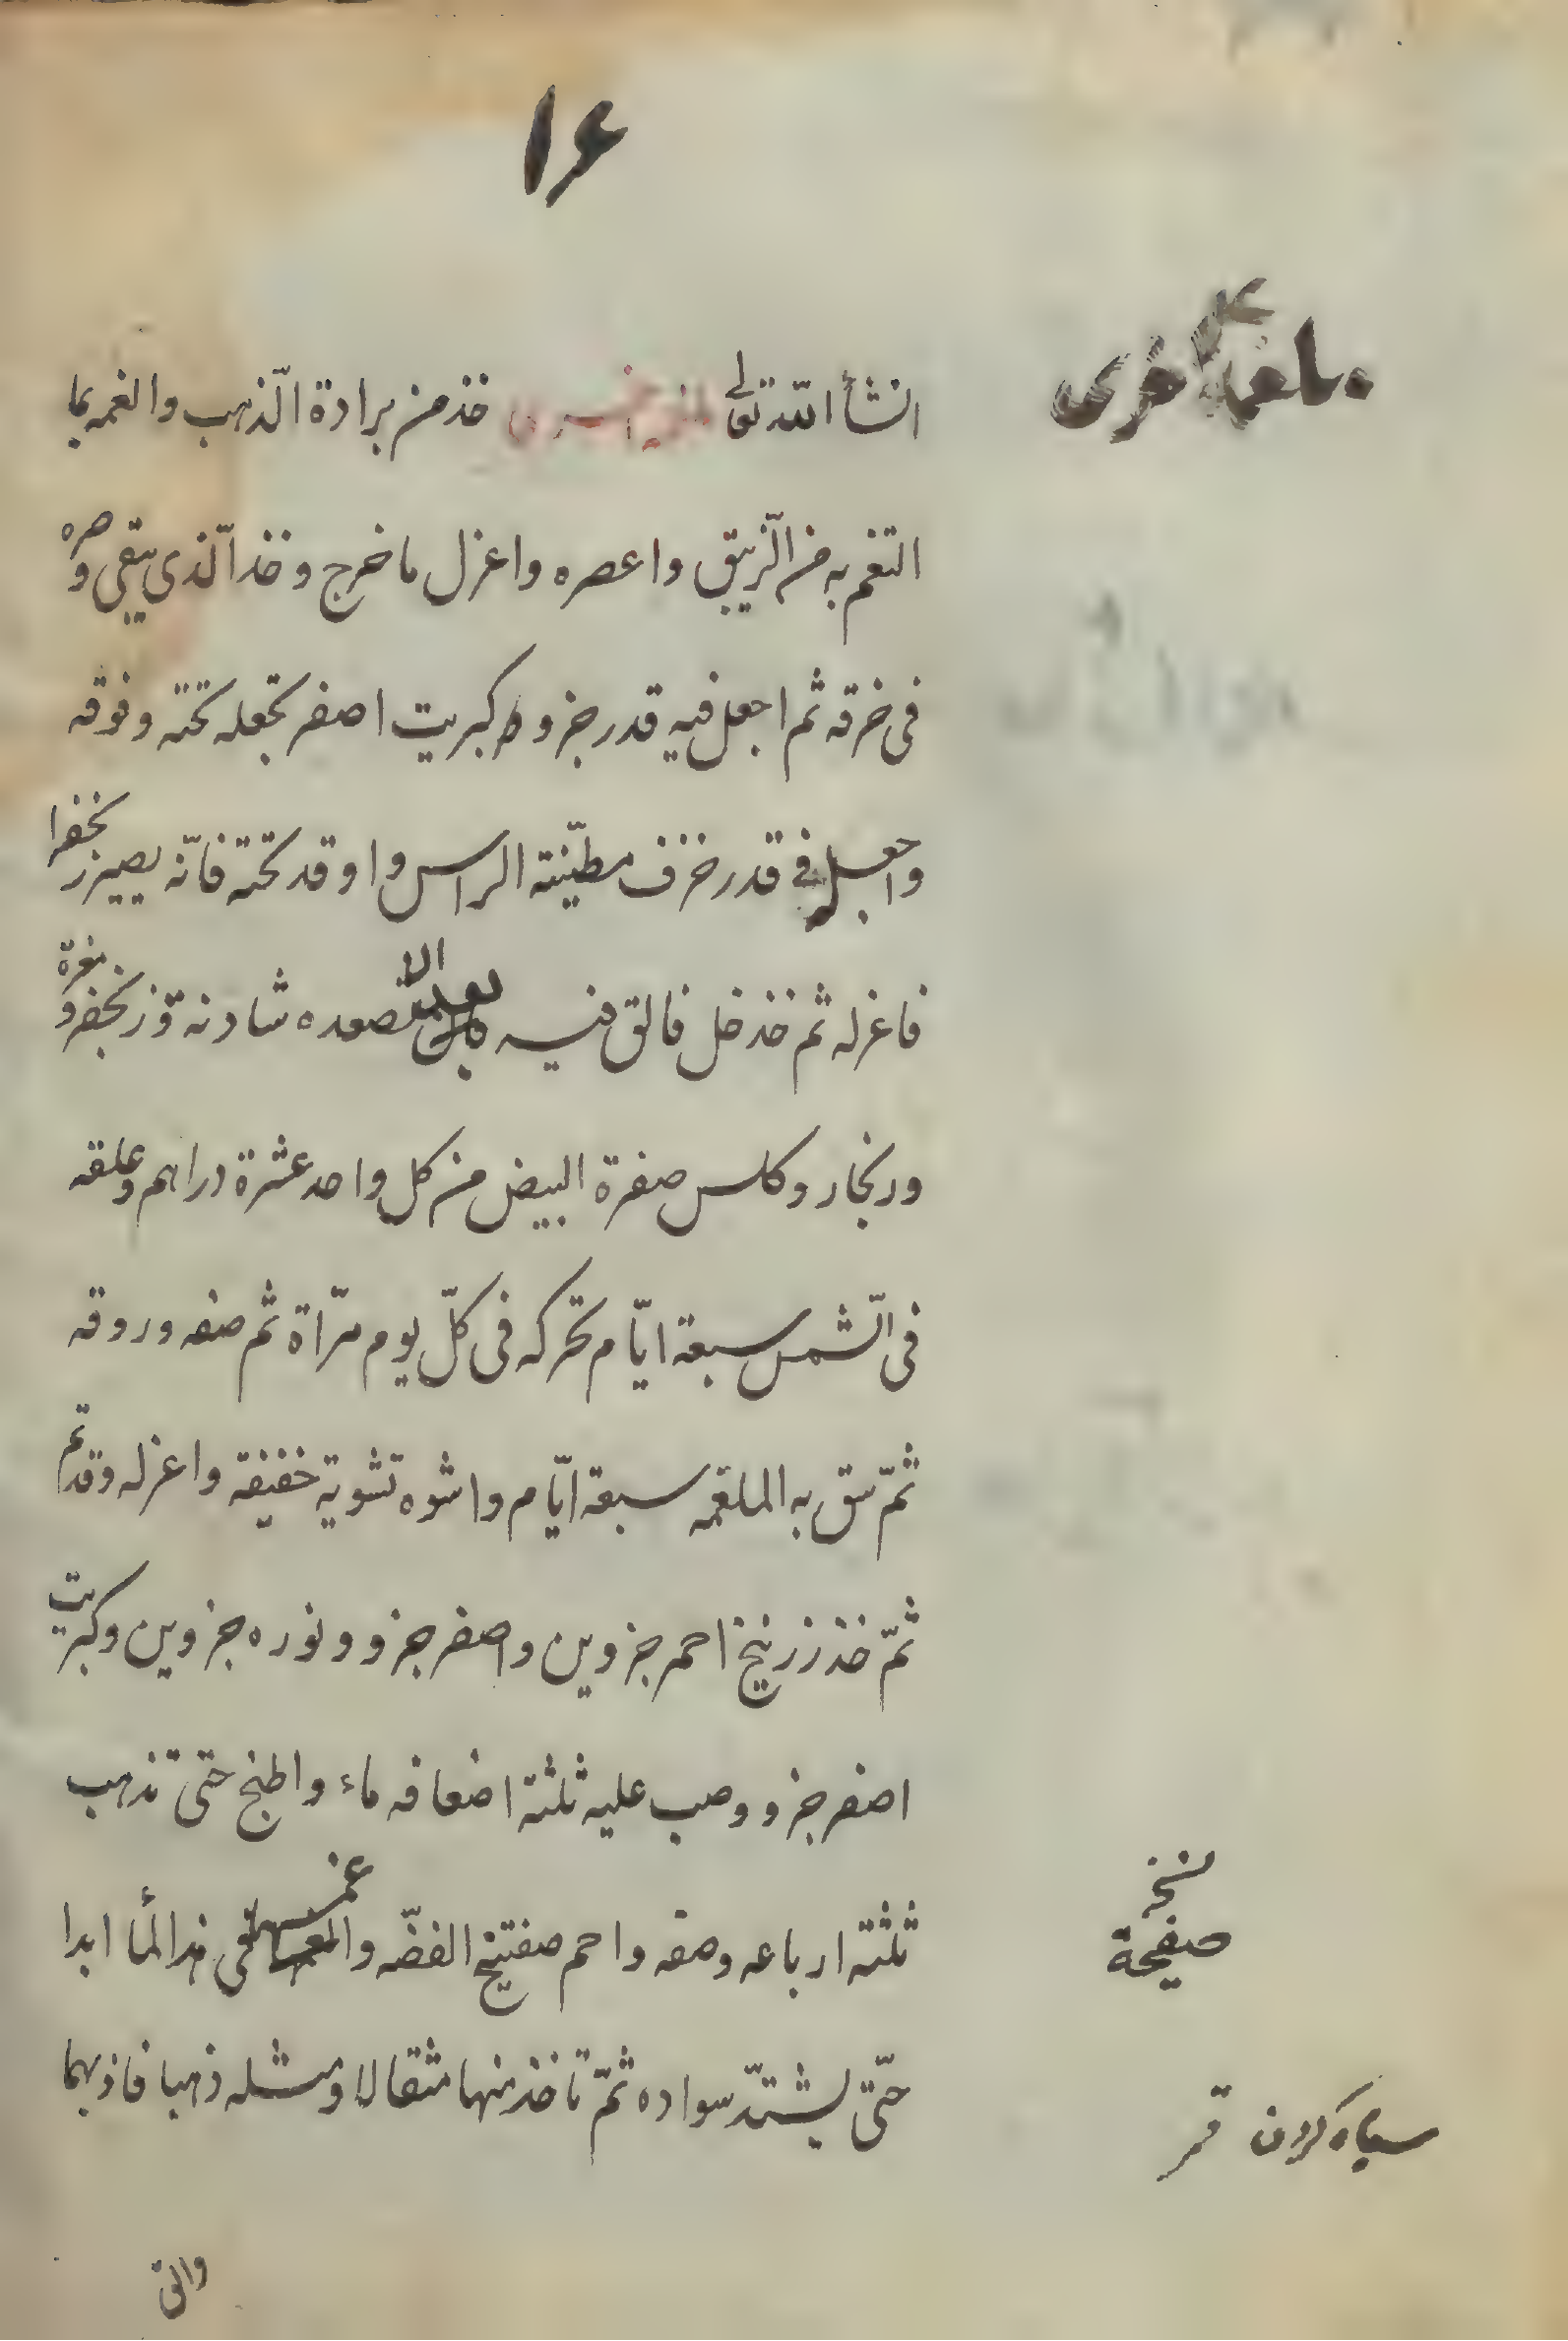 ۱۶
ملغمة اخرى
انشأ الله تعلى خذ من برادة الّذهب والغمه بما
التغم به من الّزيبق واعصره واعزل ما خرج وخذ الّذى يبقى وصره
فى خرقه ثم اجعل فيه قدر جزو كبريت اصفر تجعله تحته وفوقه
واجعله فى قدر خزف مطيّنته الراس واوقد تحته فانّه يصير زنجفرا
فاعزله ثم خذ خل فالق فيه مصعده شادنه وزنجفر ومغرة
وزنجار وكلس صفرة البيض من كل واحد عشرة دراهم وعلقه
فى الّشمس سبعة ايّام تحركه فى كلّ يوم مرّاة ثم صفه وروقه
ثمّ سق به الملغمه سبعة ايّام واشوه تشوية خفيفة واعزله وقد تم
ثمّ خذ زرنيخ احمر جزوين واصفر جزو ونوره جزوين وكبريت
اصفر جزو وصب عليه ثلثة اضعافه ماء واطبخ حتى تذهب
ثلثة ارباعه وصفه واحم صفتيخ الفضّه واغمسها فى هذا المأ ابدا
نسخ
صفيحة
حتّى يشتدّ سواده ثمّ تاخذ منها مثقالا ومثله ذهبا فاذبهما
سياه كردن قمر
والق